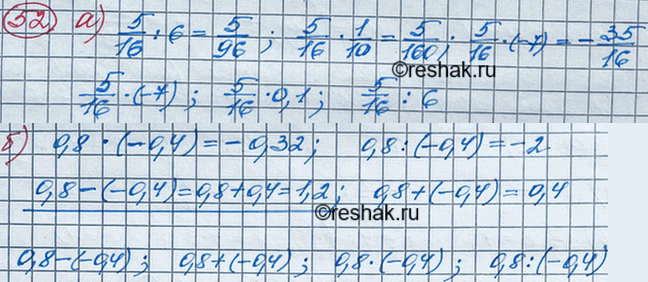 52. а) 5/16 : 6 = 5/96 ; 5/16 · 1/10 = 5/160 ; 5/16 · (-7) = - 35/16
©reshak.ru
5/16 · (-7) ; 5/16 · 0,1 ; 5/16 : 6
б) 0,8 · (-0,4) = -0,32; 0,8 : (-0,4) = -2
0,8 - (-0,4) = 0,8 + 0,4 = 1,2 ; 0,8 + (-0,4) = 0,4
©reshak.ru
0,8 - (-0,4) ; 0,8 + (-0,4) ; 0,8 · (-0,4) ; 0,8 : (-0,4)